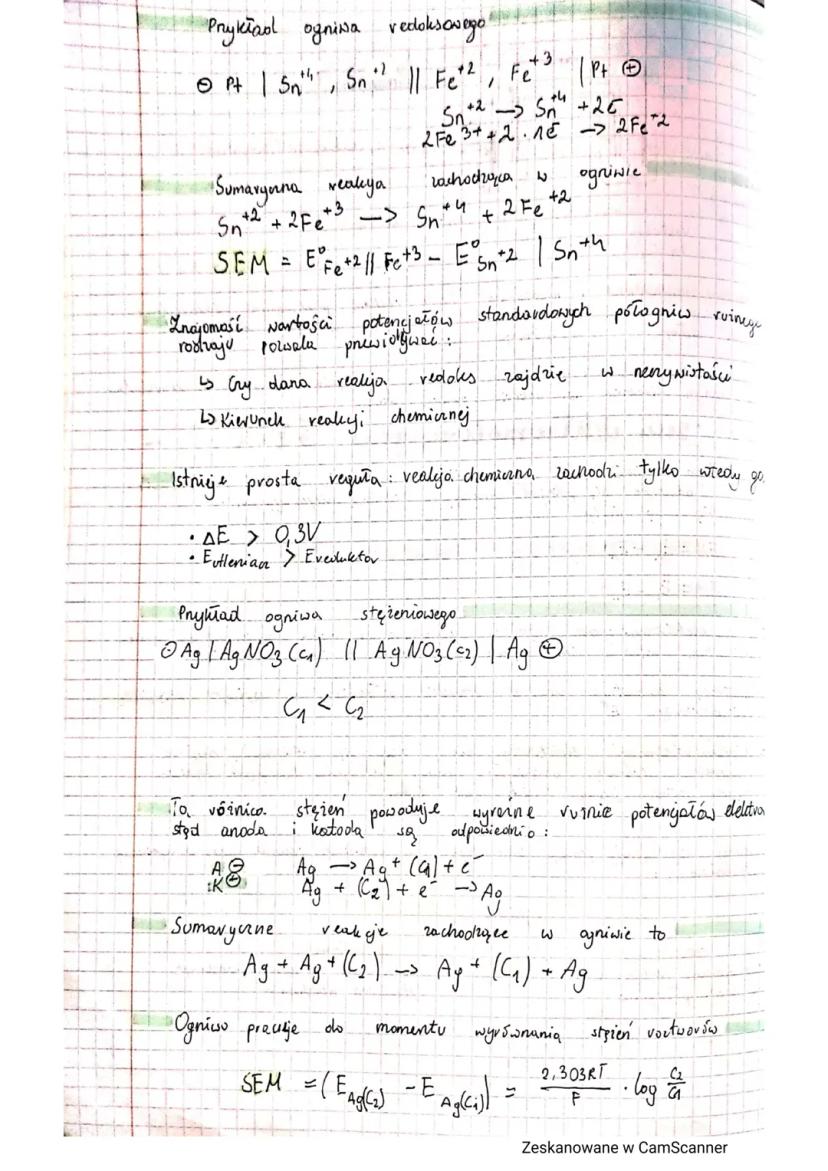 Przykład ogniwa redoksowego
⊖ Pt | Sn⁺⁴, Sn⁺² || Fe⁺², Fe⁺³ | Pt ⊕
Sn⁺² → Sn⁺⁴ + 2ē
2Fe³⁺ + 2 · 1ē → 2Fe⁺²
Sumaryczna reakcja zachodząca w ogniwie
Sn⁺² + 2Fe⁺³ → Sn⁺⁴ + 2Fe⁺²
SEM = E°Fe⁺² || Fe⁺³ - E°Sn⁺² | Sn⁺⁴
Znajomość wartości potencjałów standardowych półogniw
rodzaju pozwala przewidywać :
↳ Czy dana reakcja redoks zajdzie w rzeczywistości
↳ Kierunek reakcji chemicznej
Istnieje prosta reguła : reakcja chemiczna zachodzi tylko wtedy
• ΔE > 0,3V
• Eutleniacz > Ereduktor
Przykład ogniwa stężeniowego
⊖ Ag | AgNO₃ (c₁) || AgNO₃ (c₂) | Ag ⊕
C₁ < C₂
Ta różnica stężeń powoduje wyraźne potencjałów
stąd anoda i katoda są odpowiednio :
A ⊖ Ag → Ag⁺ (C₁) + e⁻
K ⊕ Ag⁺ (C₂) + e⁻ → Ag
Sumaryczne reakcje zachodzące w ogniwie to
Ag + Ag⁺ (C₂) → Ag⁺ (C₁) + Ag
Ogniwo pracuje do momentu wyrównania stężeń roztworów
SEM = (E Ag(C₂) - E Ag(C₁)) = 2,303RT / F · log C₂ / C₁
Zeskanowane w CamScanner